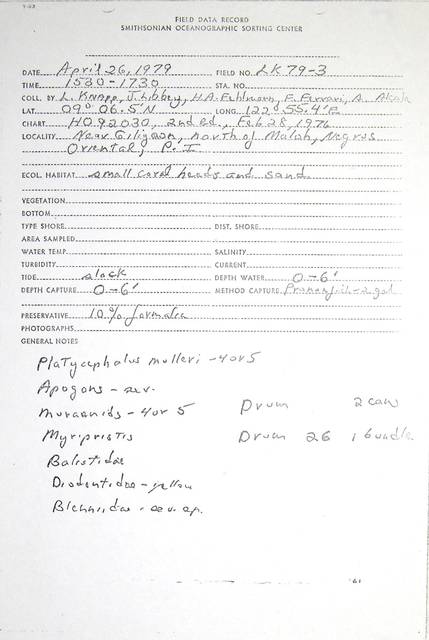 FIELD DATA RECORD
SMITHSONIAN OCEANOGRAPHIC SORTING CENTER
DATE April 26, 1979 FIELD NO. LK 79-3
TIME 1530-1730 STA. NO.
COLL. BY L. Knapp, J. Libbey, H.A. Fehlmann, F. Ferrari, A. Alcala
LAT. 09° 06.5'N LONG. 122° 55.4'E
CHART HO 92030, 2nd ed., Feb 28, 1976
LOCALITY Near Giligaon, north of Maloh, Negros
Oriental, P.I.
ECOL. HABITAT small coral heads and sand
VEGETATION
BOTTOM
TYPE SHORE DIST. SHORE
AREA SAMPLED
WATER TEMP. SALINITY
TURBIDITY CURRENT
TIDE slack DEPTH WATER 0-6'
DEPTH CAPTURE 0-6' METHOD CAPTURE
PRESERVATIVE 10% formalin
PHOTOGRAPHS
GENERAL NOTES
Platycephalus mulleri - 4 or 5
Apogons - sev.
muraenids - 4 or 5 Drum 2 cans
Myripristis Drum 26 1 bundle
Balistidae
Diodontidae - yellow
Blenniidae - sev. sp.